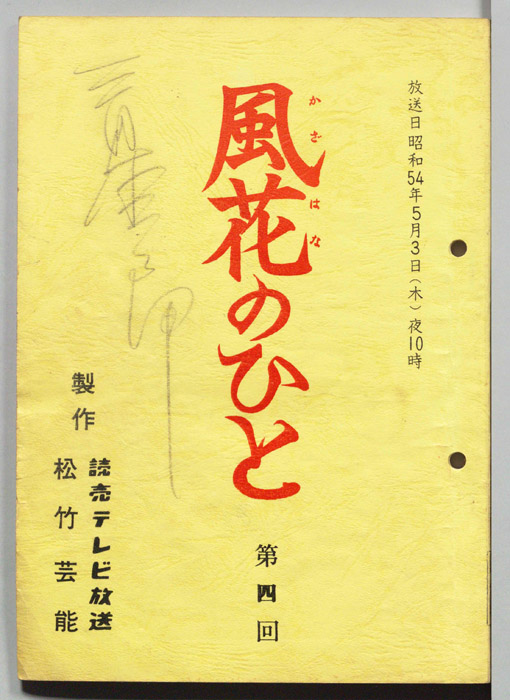 放送日 昭和54年5月3日(木)夜10時
かざはな
風花のひと
第四回
製作
読売テレビ放送
松竹芸能